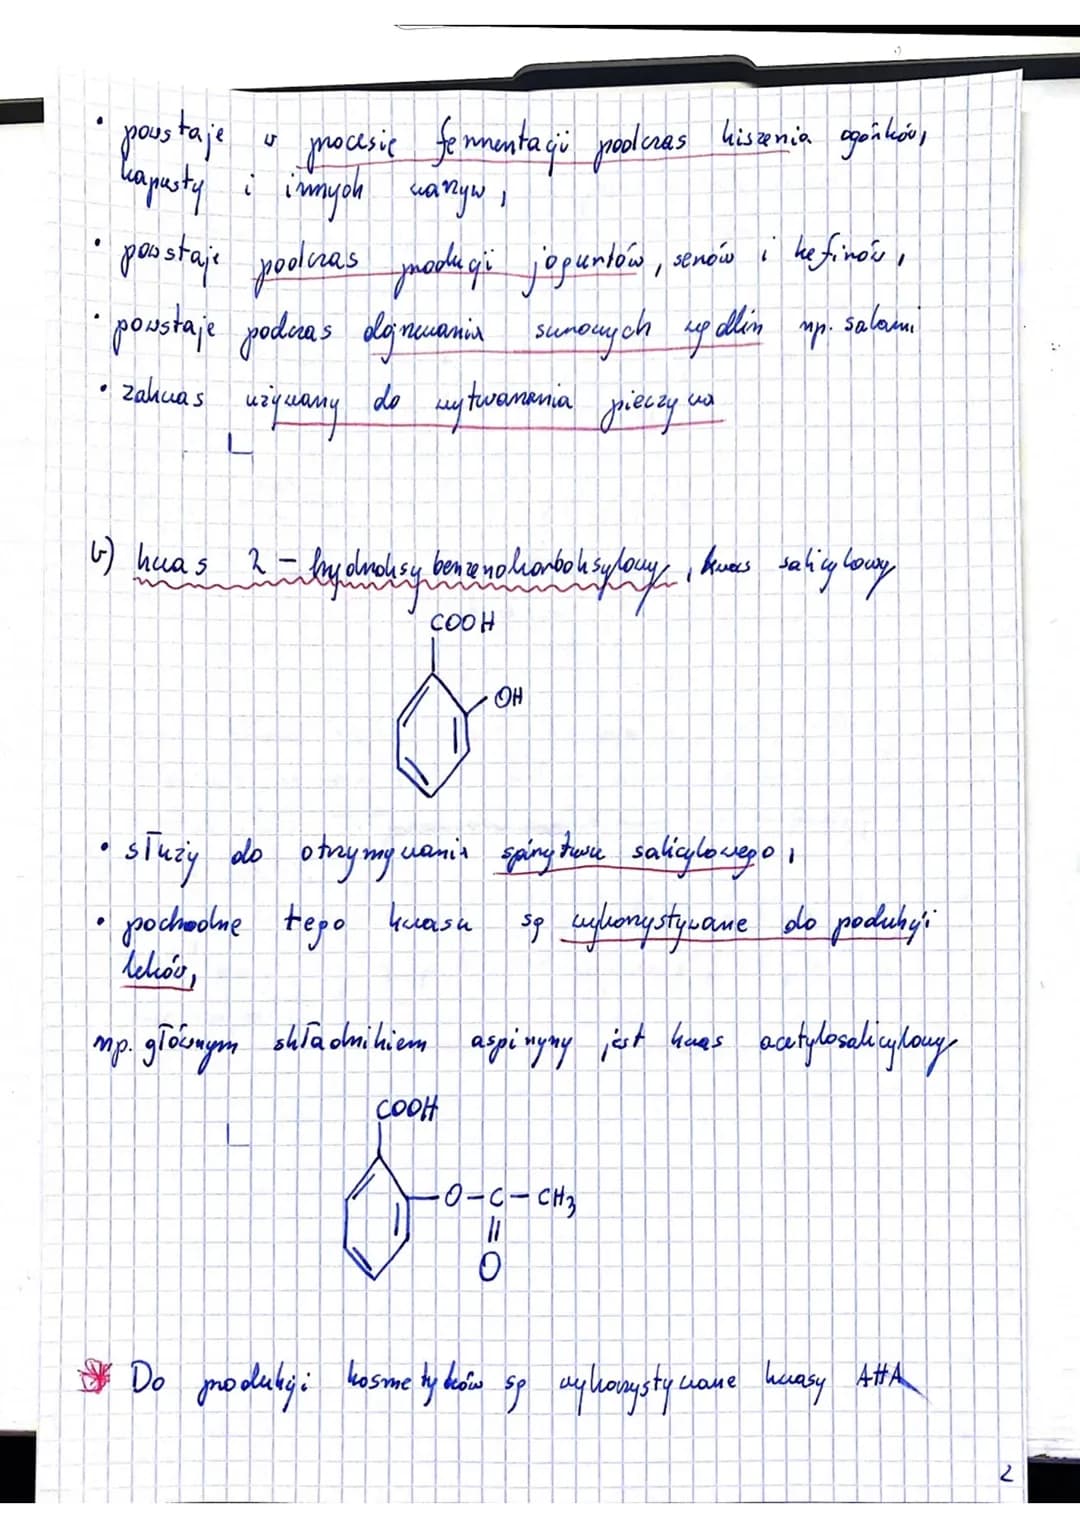 • powstaje w procesie fermentacji podczas kiszenia ogórków,
kapusty i innych warzyw,
• powstaje podczas produkcji jogurtów, serów i kefirów,
• powstaje podczas dojrzewania surowych wędlin np. salami
• zakwas używany do wytwarzania pieczywa
b) kwas 2-hydroksybenzenokarboksylowy, kwas salicylowy
COOH
OH
• służy do otrzymywania spirytusu salicylowego,
• pochodne tego kwasu są wykorzystywane do podukcji
leków,
np. głównym składnikiem aspiryny jest kwas acetylosalicylowy
COOH
O-C-CH3
O
Do produkcji kosmetyków są wykorzystywane kwasy AHA
2